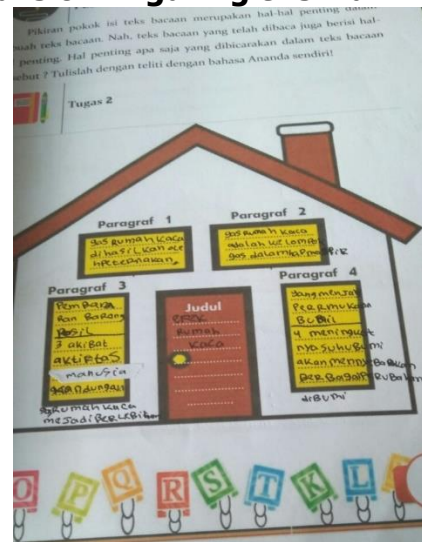 Pikiran pokok isi teks bacaan merupakan hal-hal penting dalam
buah teks bacaan. Nah, teks bacaan yang telah dibaca juga berisi hal-
penting. Hal penting apa saja yang dibicarakan dalam teks bacaan
sebut ? Tulislah dengan teliti dengan bahasa Ananda sendiri!
Tugas 2
Paragraf 1
gas Rumah Kaca
dihasilkan ole
hpeternakan,
Paragraf 2
gas Rumah Kaca
adalah kelompok
gas dalam
Paragraf 3
Pembaka
Ran BaRang
Fosil
3 akibat
aktiftas
manusia
kandungan
gasRumah Kaca
mejadi BeRLEBihan
Judul
EFEK
Rumah
Kaca
Paragraf 4
yang menjak
PeRmukaan
Bumi
4 meningkat
nya suhu Bumi
akan menyebabkan
BeRBagai PeRuBahan
diBumi
O P Q R S T K L